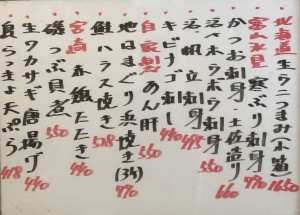 北海道 生ウニつまみ(小箱) 1650
富山氷見 寒ぶり刺身 770
かつお刺身 土佐造り 660
活〆ホウボウ刺身 550
活〆帆立刺し 528
キビナゴ刺し 440
自家製 あん肝 550
地はまぐり浜焼き(3ケ) 770
鮭ハラス焼き 528
宮崎 赤鶏たたき 440
磯つぶ貝煮 550
生ワカサギ唐揚げ 440
真らっきょ天ぷら 418